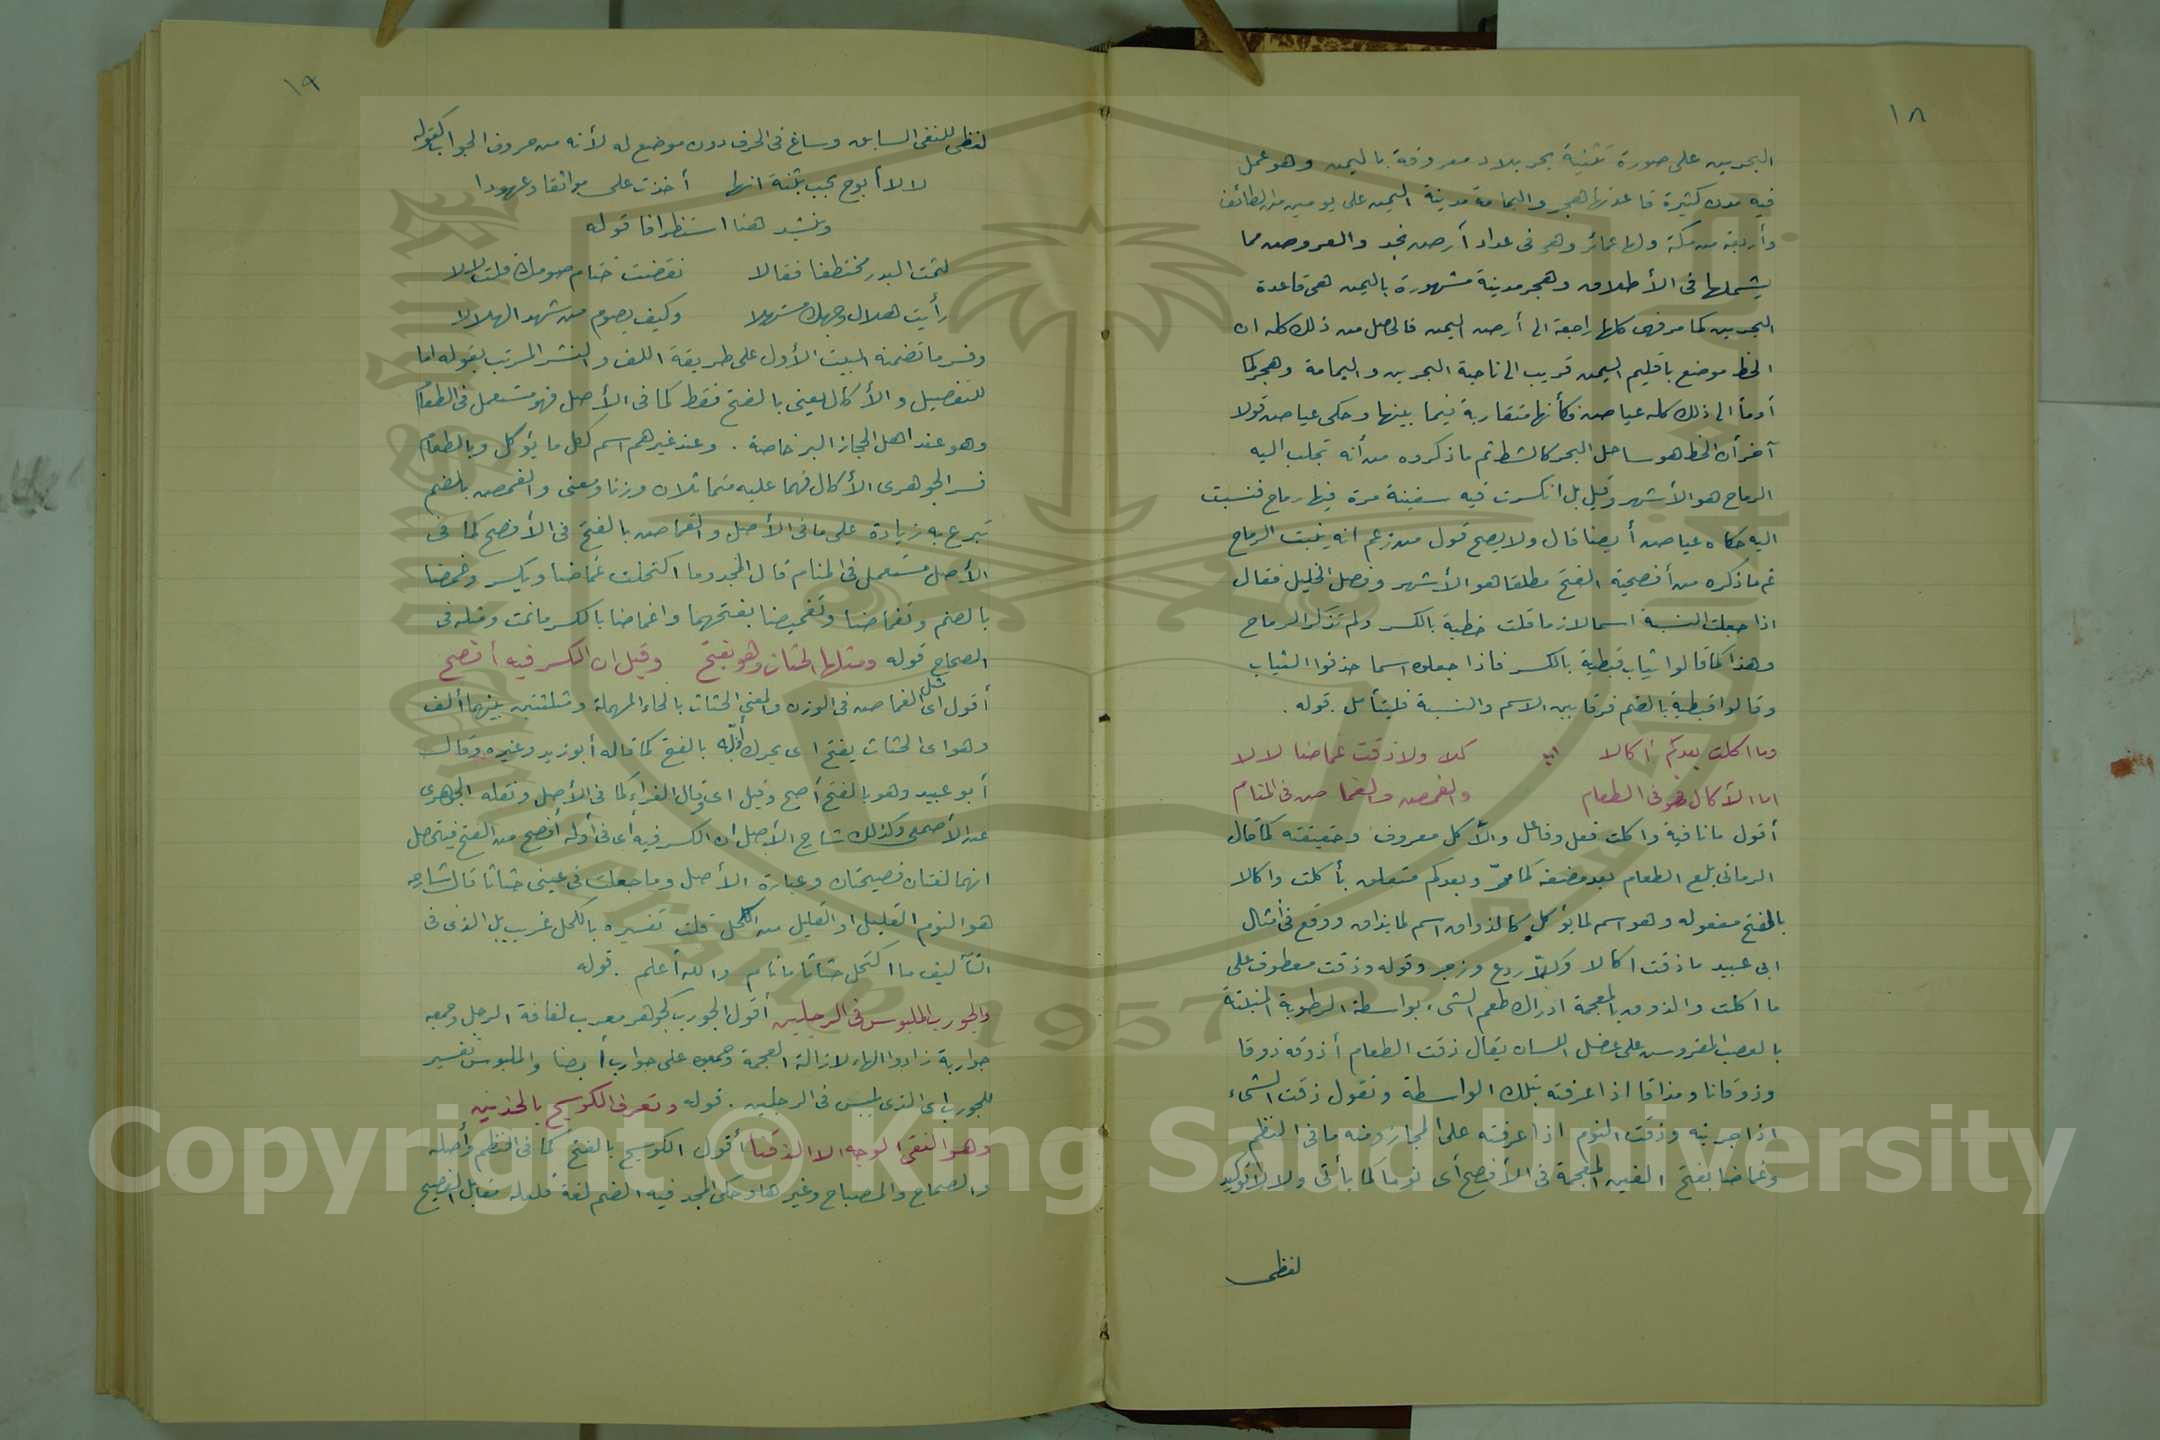 ١٨
البحرين على صورة تثنية بحر بلاد معروفة باليمن وهو عمل
فيه مدن كثيرة قاعدتها هجر واليمامة مدينة اليمن على يومين من الطائف
وأربعة من مكة ولها عمائر وهى فى عداد أرض نجد والعروض مما
يشملها فى الأطلاق وهجر مدينة مشهورة باليمن هى قاعدة
البحرين كما مر فهى كلها راجعة الى أرض اليمن فالحاصل من ذلك كله ان
الخط موضع باقليم اليمن قريب الى ناحية البحرين واليمامة وهجر كما
أومأ الى ذلك كله عياض فكأنها متقاربة فيما بينها وحكى عياض قولا
آخر أن الخط هو ساحل البحر كالشط ثم ما ذكروه من أنه تجلب اليه
الرماح هو الأشهر وقيل بل انكسرت فيه سفينة مرة فيها رماح فنسبت
اليه حكاه عياض أيضا قال ولا يصح قول من زعم انه ينبت الرماح
ثم ما ذكره من أفصحية الفتح مطلقا هو الأشهر وفصل الخليل فقال
اذا جعلت النسبة اسما لازما قلت خطية بالكسر ولم تذكر الرماح
وهذا كما قالوا ثياب قبطية بالكسر فاذا جعلوه اسما حذفوا الثياب
وقالوا قبطية بالضم فرقا بين الاسم والنسبة فليتأمل . قوله .
وما اكلت بعدكم أكالا كلا ولا ذقت غماضا لا لا
اما الأكال فهو فى الطعام والغمض والغماض فى المنام
أقول ما نافية واكلت فعل وفاعل والأكل معروف وحقيقته كما قال
الرمانى بلع الطعام بعد مضغه كما مرّ وبعدكم متعلق بأكلت واكالا
بالفتح مفعوله وهو اسم لما يؤكل كالذواق اسم لما يذاق ووقع فى أمثال
ابى عبيد ما ذقت اكالا وكلاّ ردع وزجر وقوله وذقت معطوف على
ما اكلت والذوق بالمعجمة ادراك طعم الشىء بواسطة الرطوبة المنبثة
بالعصب المفروس على عضل اللسان يقال ذقت الطعام أذوقه ذوقا
وذوقانا ومذاقا اذا عرفته بتلك الواسطة وتقول ذقت الشىء
اذا جربته وذقت النوم اذا عرفته على المجاز ومنه ما فى النظم
وغماضا بفتح الغين المعجمة فى الأفصح أى نوما كما يأتى ولا لا توكيد
لفظى
١٩
لفظى للنفى السابق وساغ فى الحرف دون موضع له لأنه من حروف الجواب كقوله
لا لا أبوح بحب بثنة انها أخذت على مواثقا وعهودا
وينشد هنا استظرافا قوله
لثمت البدر مختطفا فقالا نقضت ختام صومك قلت لا لا
رأيت هلال وجهك مستهلا وكيف يصوم من شهد الهلالا
وفسر ما تضمنه البيت الأول على طريقة اللف والنشر المرتب بقوله اما
للتفصيل والأكال يعنى بالفتح فقط كما فى الأصل فهو مستعمل فى الطعام
وهو عند اهل الحجاز البر خاصة . وعند غيرهم اسم لكل ما يؤكل وبالطعام
فسر الجوهرى الأكال فهما عليه متماثلان وزنا ومعنى والغمض بالضم
تبرع به زيادة على ما فى الأصل والغماض بالفتح فى الأفصح كما فى
الأصل مستعمل فى المنام قال المجد وما اكتحلت غماضا ويكسر وغمضا
بالضم وتغماضا وتغميضا بفتحهما واغماضا بالكسر ما نمت ومثله فى
الصحاح قوله ومثلها الحثاث وهو بفتح وقيل ان الكسر فيه أفصح
أقول اى مثل الغماض فى الوزن والمعنى الحثاث بالحاء المهملة ومثلثتين بينهما ألف
وهو اى الحثاث يفتح اى يحرك أوّله بالفتح كما قاله أبو زيد وغيره وقال
أبو عبيد وهو بالفتح أصح وقيل اى وقال الفراء كما فى الأصل ونقله الجوهرى
عن الأصمعى وكذلك شارح الأصل أن الكسر فيه أى فى أوله أفصح من الفتح فيتحصل
انهما لغتان فصيحتان وعبارة الأصل وما جعلت فى عينى حثاثا قال شارحه
هو النوم القليل او القليل من الكحل قلت تفسيره بالكحل غريب بل الذى فى
التآليف ما اكتحل حثاثا ما نام والله أعلم . قوله
والجورب الملبوس فى الرجلين أقول الجورب كجوهر معرب لفافة الرجل وجمعه
جواربة زادوا الهاء لازالة العجمة وجمعوه على جوارب أيضا والملبوس تفسير
للجورب اى الذى يلبس فى الرجلين . قوله وتعرف الكوسج بالخدين
وهو النقى الوجه الا الذقنا أقول الكوسج بالفتح كما فى النظم وأصله
والصحاح والمصباح وغيرها وحكى المجد فيه الضم لغة فلعله مقابل الفصيح
Copyright © King Saud University
1957